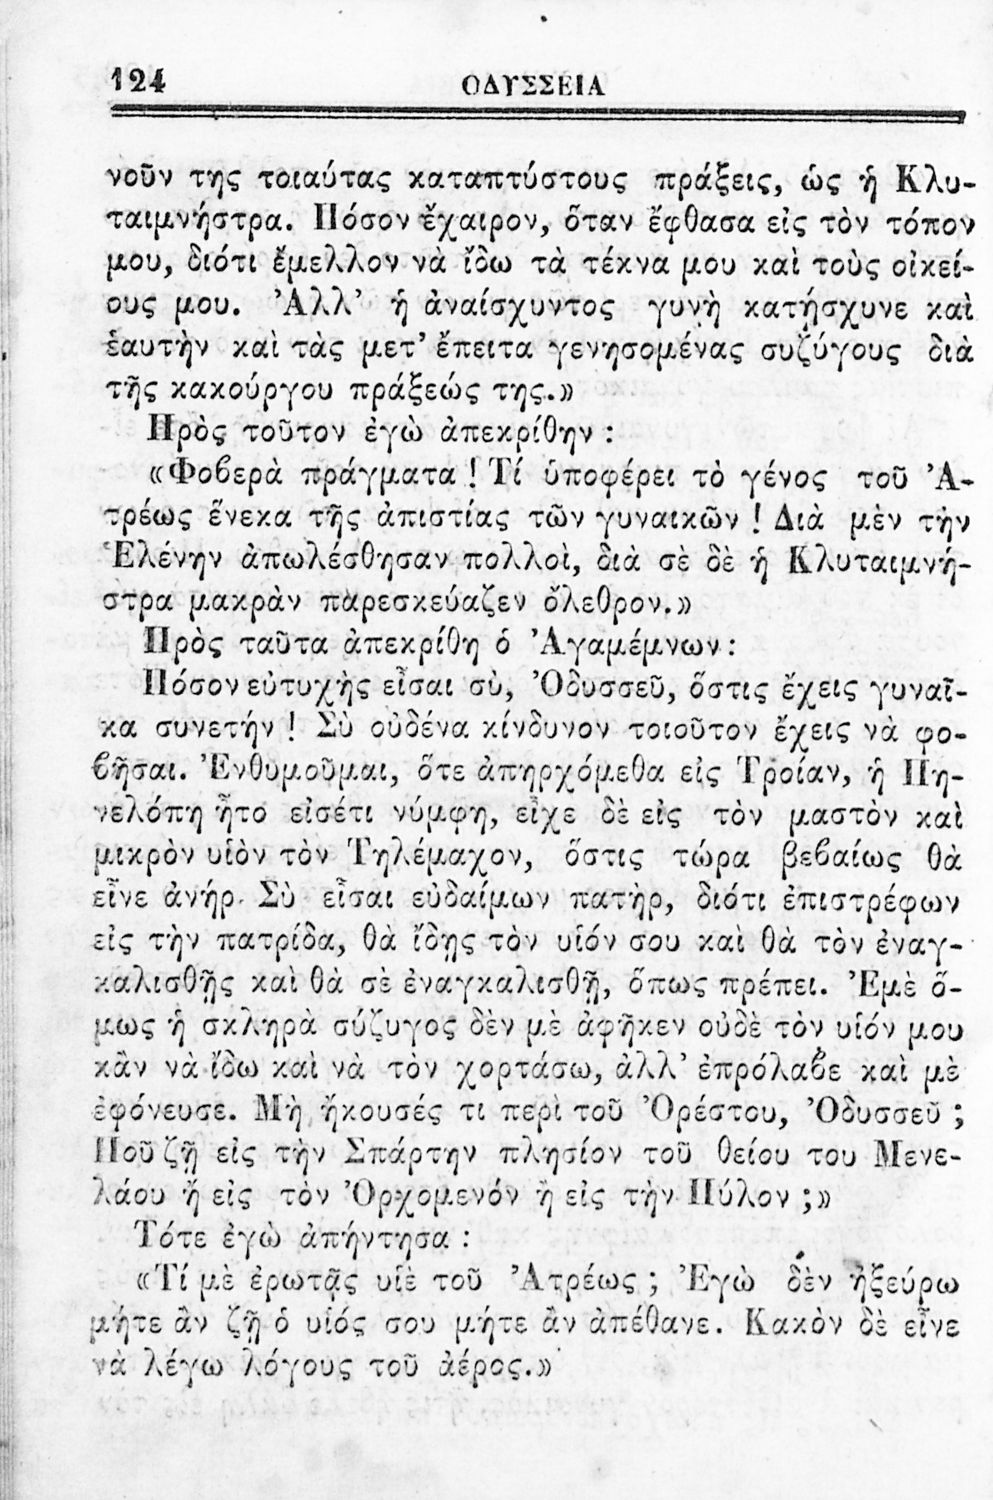 124 ΟΔΥΣΣΕΙΑ
νοῦν της τοιαύτας καταπτύστους πράξεις, ὡς ἡ Κλυ-
ταιμνήστρα. Πόσον ἔχαιρον, ὅταν ἔφθασα εἰς τὸν τόπον
μου, διότι ἔμελλον νὰ ἴδω τὰ τέκνα μου καὶ τοὺς οἰκεί-
ους μου. Ἀλλ’ ἡ ἀναίσχυντος γυνὴ κατήσχυνε καὶ
ἑαυτὴν καὶ τὰς μετ’ ἔπειτα γενησομένας συζύγους διὰ
τῆς κακούργου πράξεώς της.»
Πρὸς τοῦτον ἐγὼ ἀπεκρίθην :
«Φοϐερὰ πράγματα ! Τί ὑποφέρει τὸ γένος τοῦ Ἀ-
τρέως ἕνεκα τῆς ἀπιστίας τῶν γυναικῶν ! Διὰ μὲν τὴν
Ἑλένην ἀπωλέσθησαν πολλοὶ, διὰ σὲ δὲ ἡ Κλυταιμνή-
στρα μακρὰν παρεσκεύαζεν ὄλεθρον.»
Πρὸς ταῦτα ἀπεκρίθη ὁ Ἀγαμέμνων :
Πόσον εὐτυχὴς εἶσαι σὺ, Ὀδυσσεῦ, ὅστις ἔχεις γυναῖ-
κα συνετήν ! Σὺ οὐδένα κίνδυνον τοιοῦτον ἔχεις νὰ φο-
ϐῆσαι. Ἐνθυμοῦμαι, ὅτε ἀπηρχόμεθα εἰς Τροίαν, ἡ Πη-
νελόπη ἦτο εἰσέτι νύμφη, εἶχε δὲ εἰς τὸν μαστὸν καὶ
μικρὸν υἱὸν τὸν Τηλέμαχον, ὅστις τώρα βεϐαίως θὰ
εἶνε ἀνήρ. Σὺ εἶσαι εὐδαίμων πατὴρ, διότι ἐπιστρέφων
εἰς τὴν πατρίδα, θὰ ἴδῃς τὸν υἱόν σου καὶ θὰ τὸν ἐναγ-
καλισθῇς καὶ θὰ σὲ ἐναγκαλισθῇ, ὅπως πρέπει. Ἐμὲ ὅ-
μως ἡ σκληρὰ σύζυγος δὲν μὲ ἀφῆκεν οὐδὲ τὸν υἱόν μου
κἂν νὰ ἴδω καὶ νὰ τὸν χορτάσω, ἀλλ’ ἐπρόλαϐε καὶ μὲ
ἐφόνευσε. Μὴ ἤκουσές τι περὶ τοῦ Ὀρέστου, Ὀδυσσεῦ ;
Ποῦ ζῇ εἰς τὴν Σπάρτην πλησίον τοῦ θείου του Μενε-
λάου ἢ εἰς τὸν Ὀρχομενόν ἢ εἰς τὴν Πύλον ;»
Τότε ἐγὼ ἀπήντησα :
«Τί μὲ ἐρωτᾷς υἱὲ τοῦ Ἀτρέως ; Ἐγὼ δὲν ἠξεύρω
μήτε ἂν ζῇ ὁ υἱός σου μήτε ἂν ἀπέθανε. Κακὸν δὲ εἶνε
νὰ λέγω λόγους τοῦ ἀέρος.»